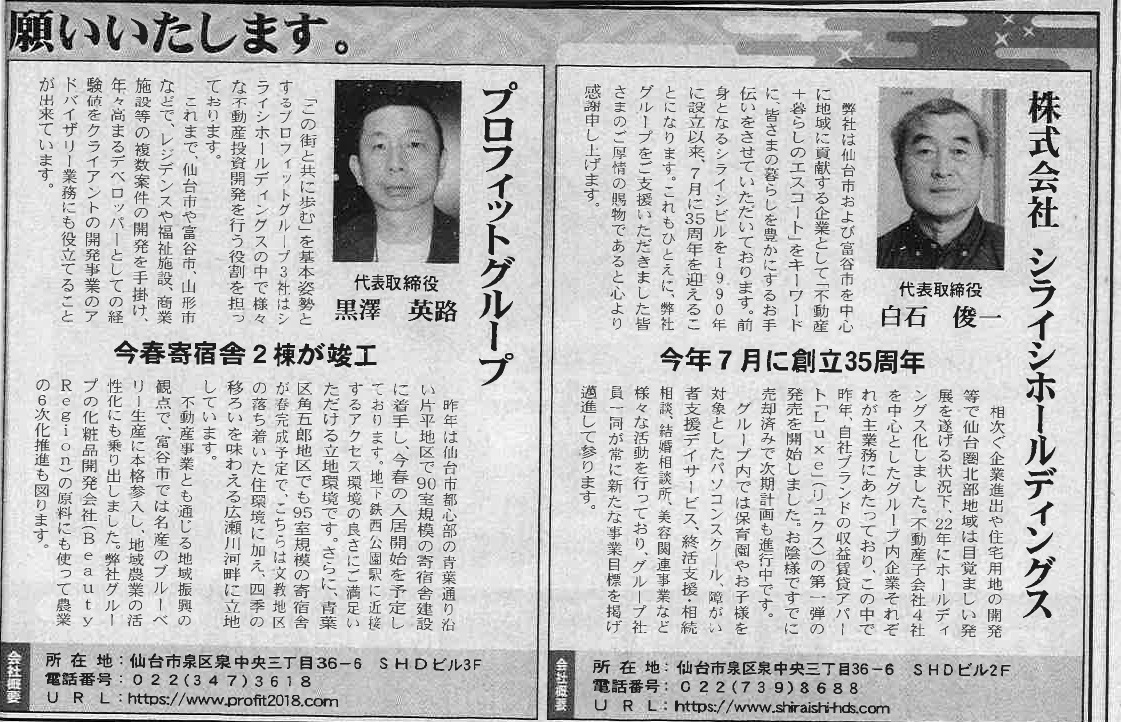 願いいたします。
株式会社 シライシホールディングス
代表取締役
白石 俊一
弊社は仙台市および富谷市を中心
に地域に貢献する企業として「不動産
＋暮らしのエスコート」をキーワード
に、皆さまの暮らしを豊かにするお手
伝いをさせていただいております。前
身となるシライシビルを1990年
に設立以来、7月に35周年を迎えるこ
とになります。これもひとえに、弊社
グループをご支援いただきました皆
さまのご厚情の賜物であると心より
感謝申し上げます。
今年7月に創立35周年
相次ぐ企業進出や住宅用地の開発
等で仙台圏北部地域は目覚ましい発
展を遂げる状況下、22年にホールディ
ングス化しました。不動産子会社4社
を中心としたグループ内企業それぞ
れが主業務にあたっており、この中で
昨年、自社ブランドの収益賃貸アパー
ト「Luxe」(リュクス)の第一弾の
発売を開始しました。お陰様ですでに
売却済みで次期計画も進行中です。
グループ内では保育園やお子様を
対象としたパソコンスクール、障がい
者支援デイサービス、終活支援・相続
相談、結婚相談所、美容関連事業など
様々な活動を行っており、グループ社
員一同が常に新たな事業目標を掲げ
邁進して参ります。
会社概要
所在地：仙台市泉区泉中央三丁目36−6 SHDビル2F
電話番号：022(739)8688
URL：https://www.shiraishi-hds.com
プロフィットグループ
代表取締役
黒澤 英路
「この街と共に歩む」を基本姿勢と
するプロフィットグループ3社はシ
ライシホールディングスの中で様々
な不動産投資開発を行う役割を担っ
ております。
これまで、仙台市や富谷市、山形市
などで、レジデンスや福祉施設、商業
施設等の複数案件の開発を手掛け、
年々高まるデベロッパーとしての経
験値をクライアントの開発事業のア
ドバイザリー業務にも役立てること
が出来ています。
今春寄宿舎2棟が竣工
昨年は仙台市都心部の青葉通り沿
い片平地区で90室規模の寄宿舎建設
に着手し、今春の入居開始を予定し
ております。地下鉄西公園駅に近接
するアクセス環境の良さにご満足い
ただける立地環境です。さらに、青葉
区角五郎地区でも95室規模の寄宿舎
が春完成予定で、こちらは文教地区
の落ち着いた住環境に加え、四季の
移ろいを味わえる広瀬川河畔に立地
しています。
不動産事業とも通じる地域振興の
観点で、富谷市では名産のブルーベ
リー生産に本格参入し、地域農業の活
性化にも乗り出しました。弊社グルー
プの化粧品開発会社〈Beauty
Region〉の原料にも使って農業
の6次化推進も図ります。
会社概要
所在地：仙台市泉区泉中央三丁目36−6 SHDビル3F
電話番号：022(347)3618
URL：https://www.profit2018.com